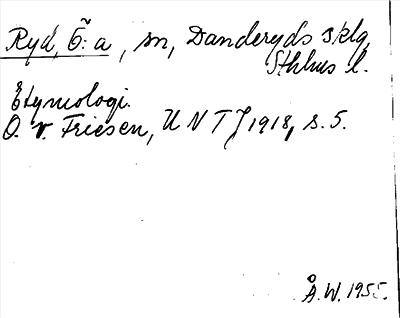 Ryd, Ö:a, sn, Danderyds sklg,
Sthlms l.
Etymologi.
O. v. Friesen, UNTJ 1918, s. 5.
Å.W. 1955.